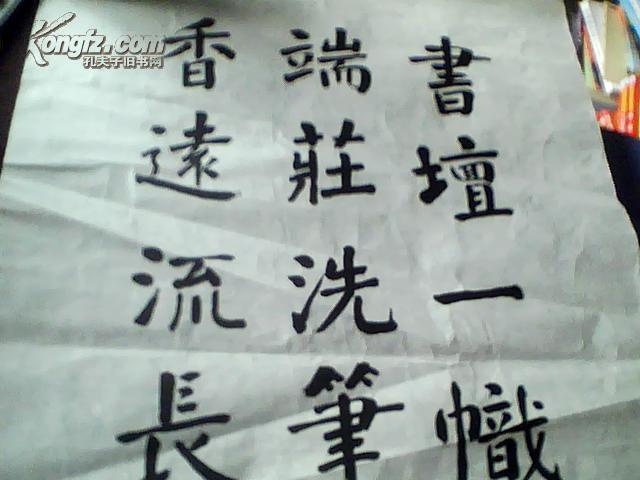 書壇一幟
端莊洗筆
香遠流長
Kongfz.com
孔夫子旧书网